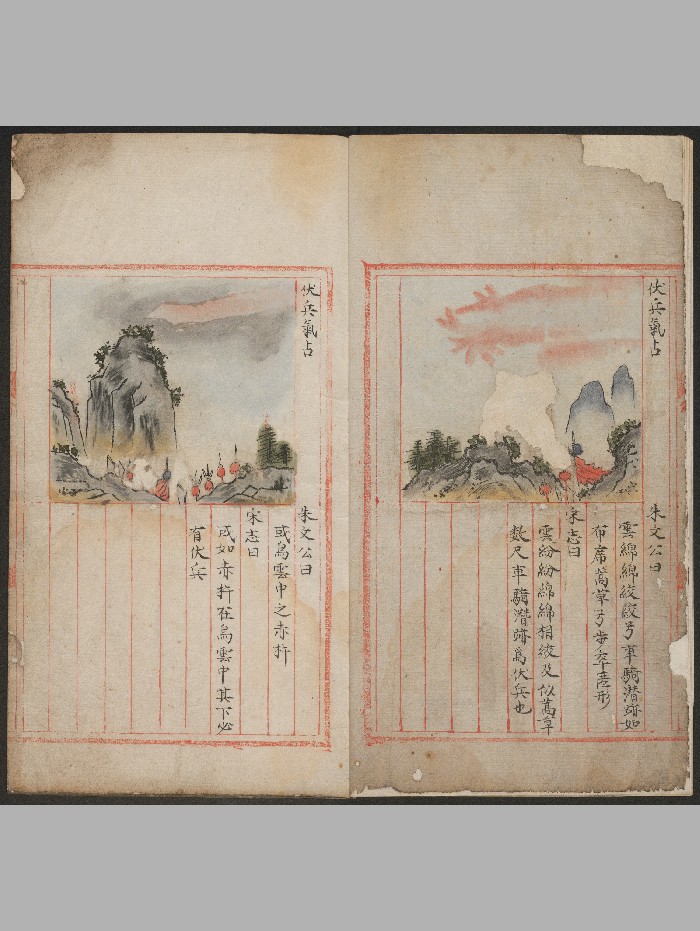 伏兵氣占
朱文公曰
雲綿綿絞絞兮車騎潛跡如
布席蒿草兮步卒
形
宋志曰
雲紛紛綿綿相絞及似蒿草
數尺車騎潛跡為伏兵也
伏兵氣占
朱文公曰
或烏雲中之赤杆
宋志曰
或如赤杆在烏雲中其下必
有伏兵